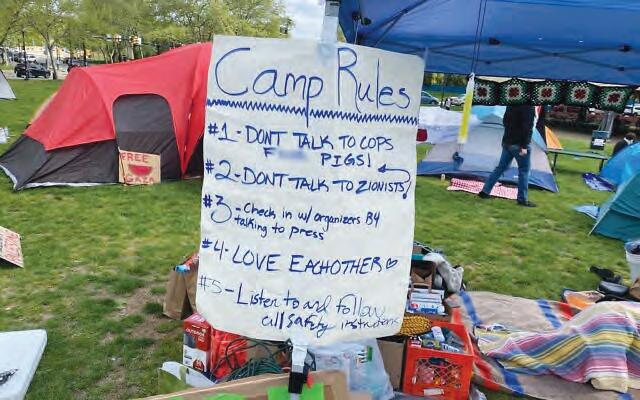 Camp Rules
#1-DONT TALK TO COPS
F PIGS!
#2-DONT TALK TO ZIONISTS!
#3-Check in w/ organizers B4
talking to press
#4-LOVE EACHOTHER♡
#5-Listen to and follow
all safety instructions
FREE
GAZA